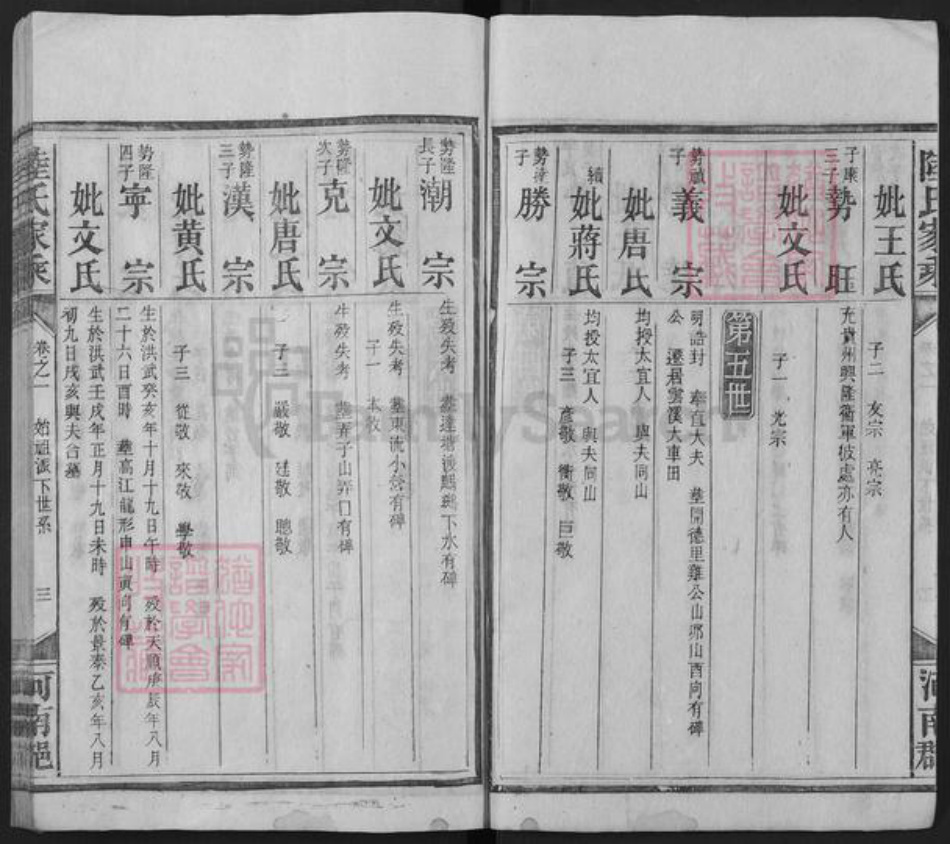 陸氏家乘
河南郡
妣王氏
子二 友宗 亮宗
子康三子
勢旺
充貴州興隆衛軍彼處亦有人
妣文氏
子一 光宗
第五世
勢誠子
義宗
明誥封 奉直大夫 塟開德里雞公山邓山酉向有碑
公 遷居雲溪大車田
妣唐氏
均授太宜人 與夫同山
續
妣蔣氏
均授太宜人 與夫同山
子三 彥敬 衡敬 巨敬
子
勝宗
勢隆長子
潮宗
生歿失考 有碑
妣文氏
生歿失考 塟東流小營有碑
子一 本敬
勢隆次子
克宗
生歿失考 塟弄子山弄口有碑
妣唐氏
子三 嚴敬 廷敬 聰敬
勢隆三子
漢宗
妣黄氏
子三 從敬 來敬 學敬
勢隆四子
寧宗
生於洪武癸亥年十月十九日午時 歿於天順庚辰年八月
二十六日酉時 塟高江龍形申山寅向有碑
妣文氏
生於洪武壬戌年正月十九日未時 歿於景泰乙亥年八月
初九日戌亥與夫合墓
陸氏家乘
卷之一 始祖派下世系 三
河南郡
FamilySearch